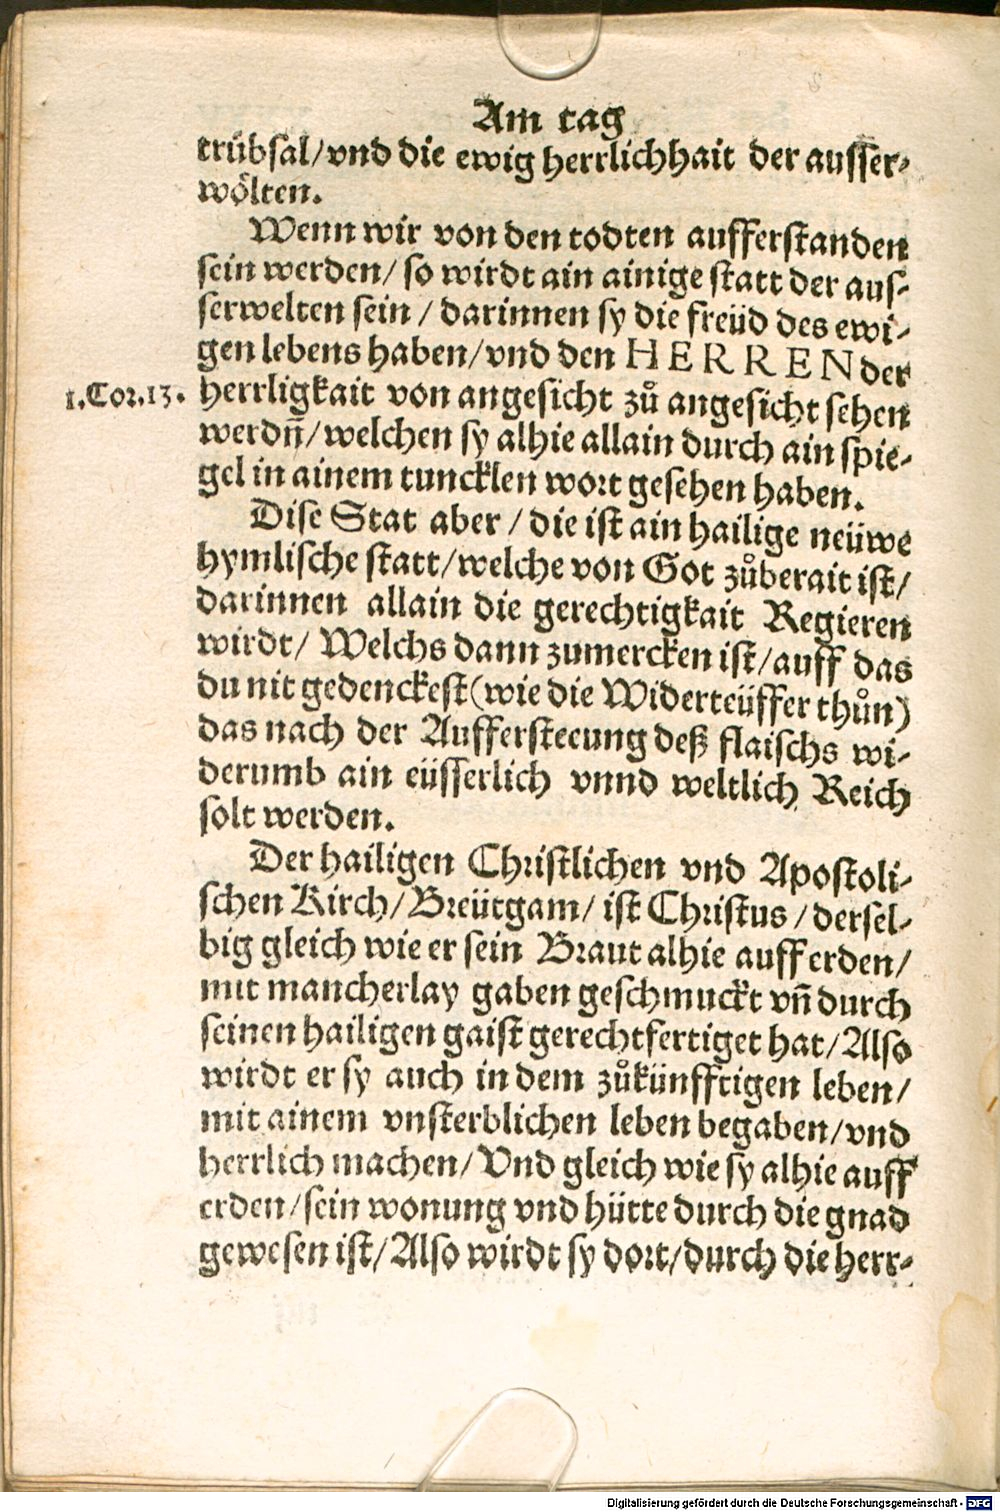 Am tag
trübsal/vnd die ewig herrlichhait der ausser-
wölten.
Wenn wir von den todten aufferstanden
sein werden/ so wirdt ain ainige statt der aus-
serwelten sein / darinnen sy die freüd des ewi-
gen lebens haben/vnd den HERREN der
1.Cor.13. herrligkait von angesicht zů angesicht sehen
werdñ/welchen sy alhie allain durch ain spie-
gel in ainem tuncklen wort gesehen haben.
Dise Stat aber / die ist ain hailige neüwe
hymlische statt/welche von Got zůberait ist/
darinnen allain die gerechtigkait Regieren
wirdt/ Welchs dann zumercken ist/auff das
du nit gedenckest(wie die Widerteüffer thůn)
das nach der Aufferstecung deß flaischs wi-
derumb ain eüsserlich vnnd weltlich Reich
solt werden.
Der hailigen Christlichen vnd Apostoli-
schen Kirch/Breütgam/ ist Christus / dersel-
big gleich wie er sein Braut alhie auff erden/
mit mancherlay gaben geschmuckt vñ durch
seinen hailigen gaist gerechtfertiget hat/Also
wirdt er sy auch in dem zůkünfftigen leben/
mit ainem vnsterblichen leben begaben/vnd
herrlich machen/ Vnd gleich wie sy alhie auff
erden/sein wonung vnd hütte durch die gnad
gewesen ist/Also wirdt sy dort/durch die herr-
Digitalisierung gefördert durch die Deutsche Forschungsgemeinschaft - DFG